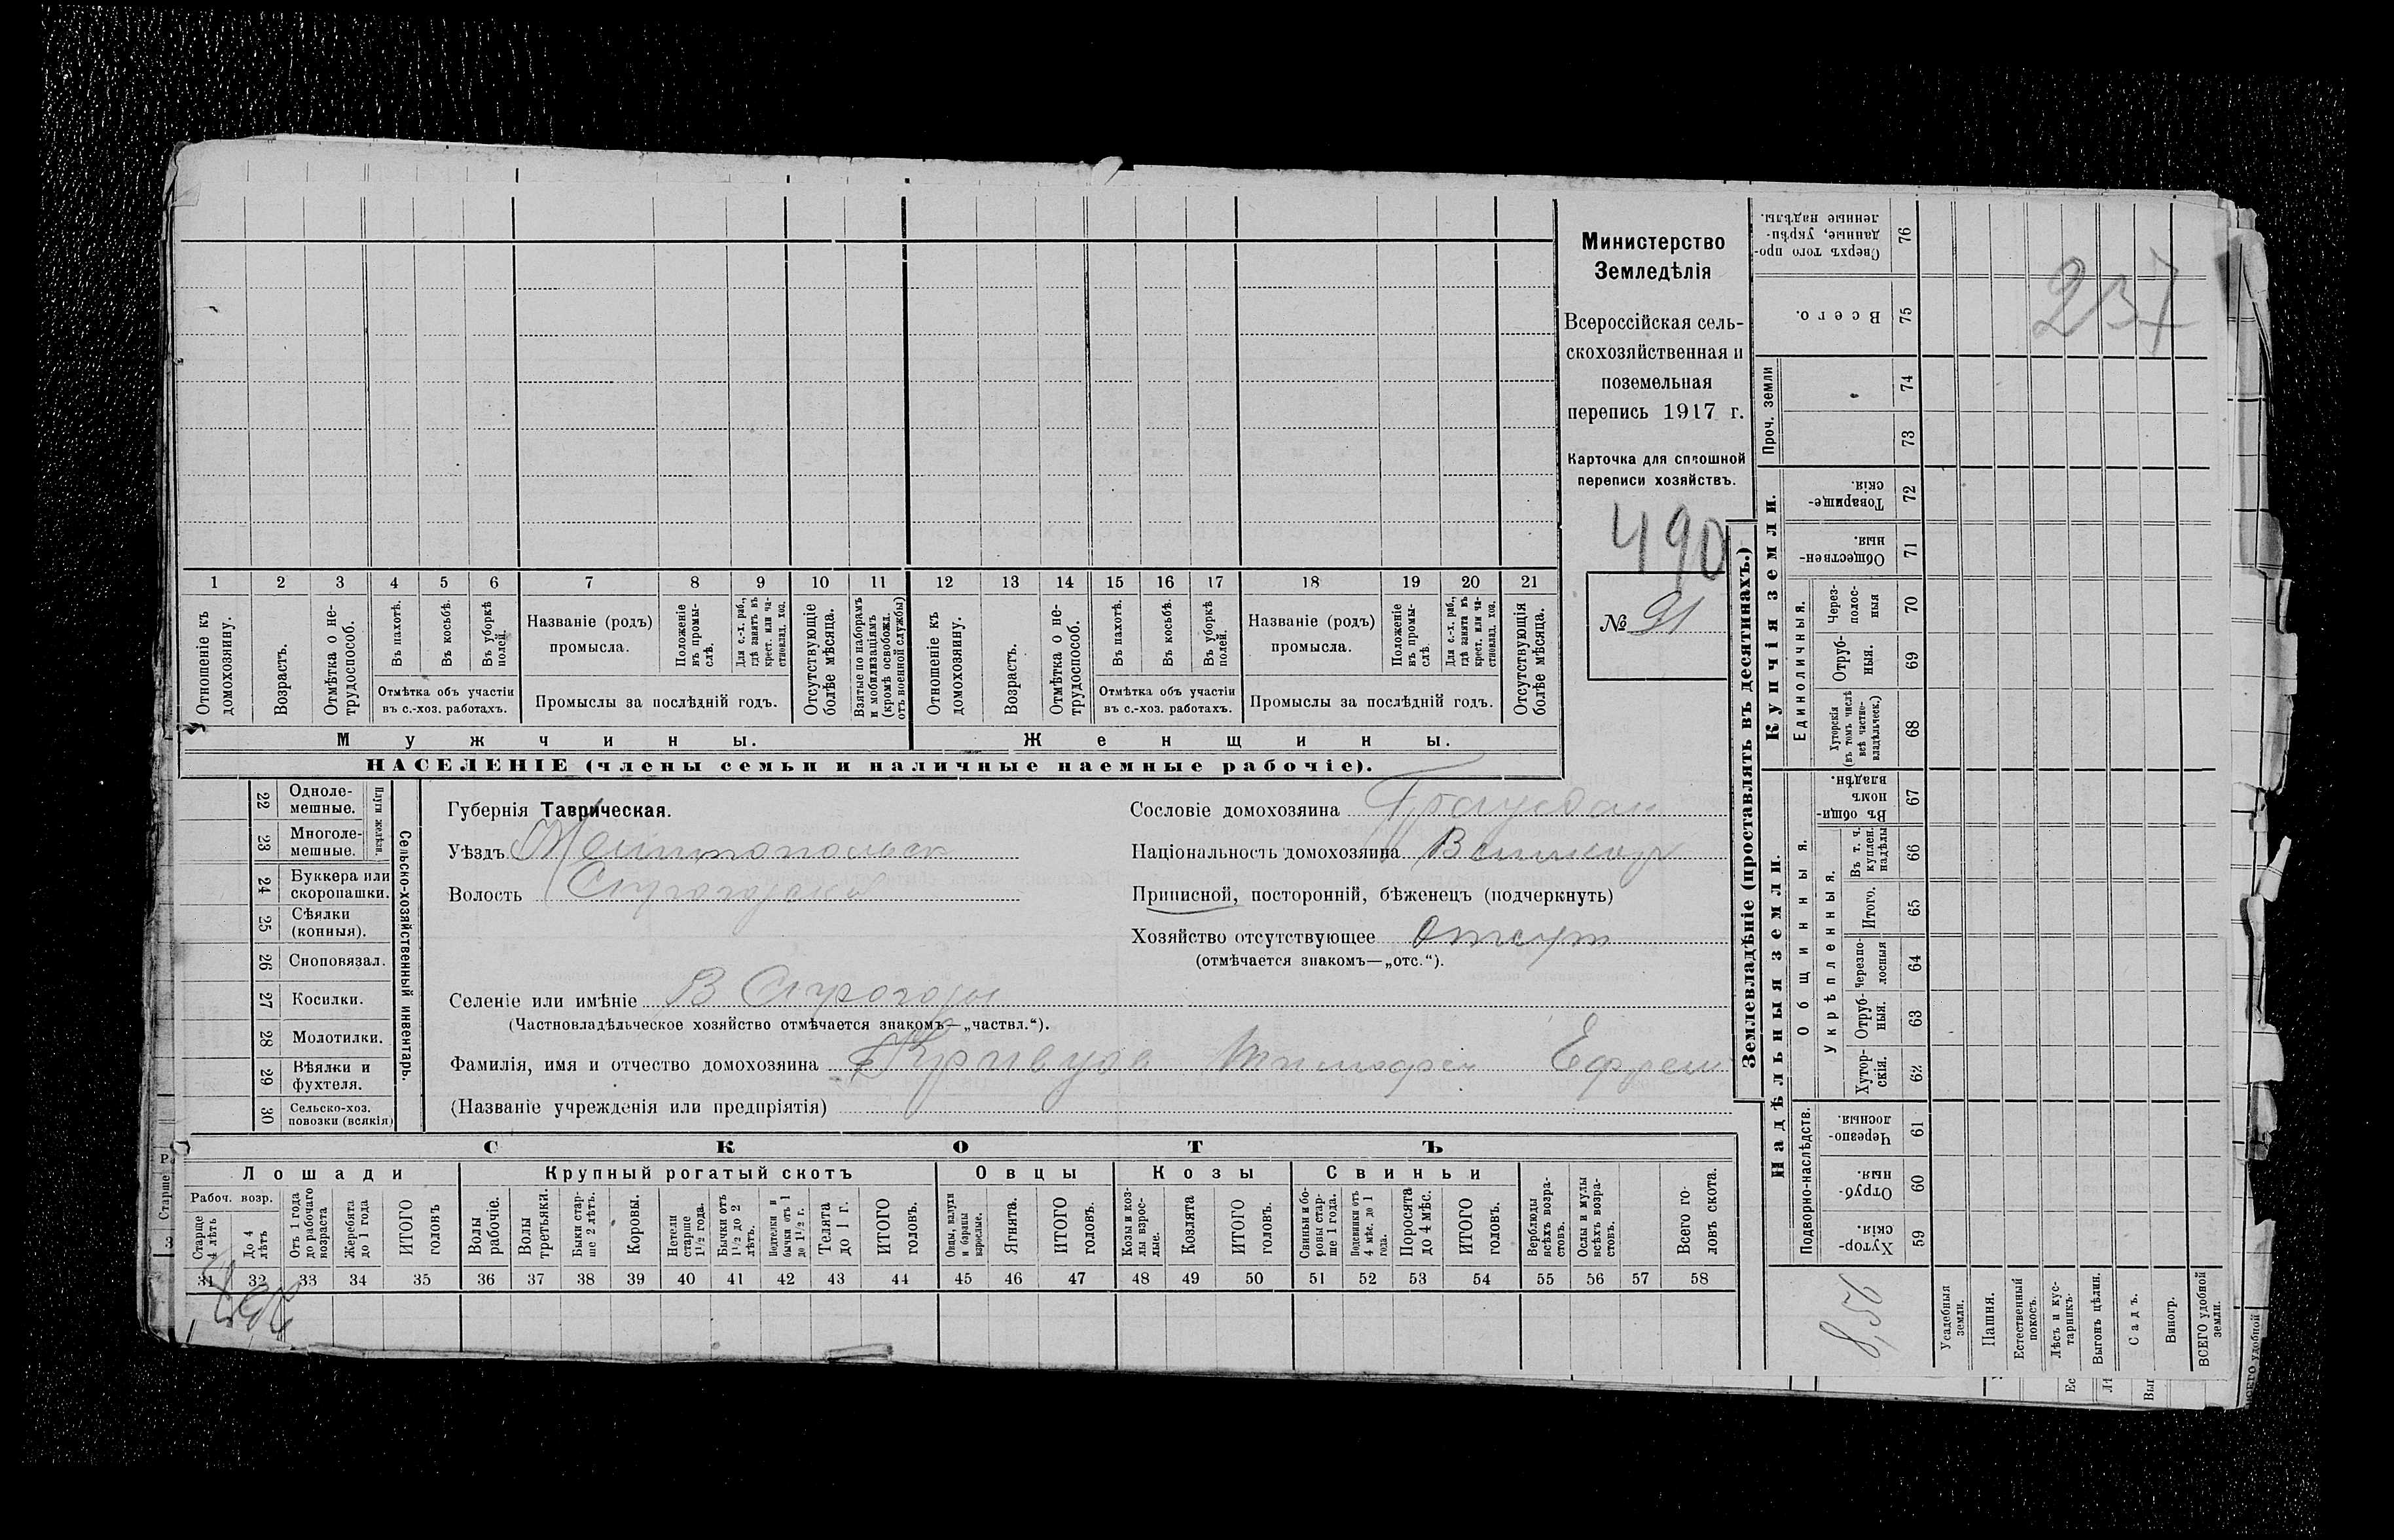 Министерство
Земледѣлія
Всероссійская сель-
скохозяйственная и
поземельная
перепись 1917 г.
Карточка для сплошной
переписи хозяйствъ.
490
№ 91
237
1 2 3 4 5 6 7 8 9 10 11 12 13 14 15 16 17 18 19 20 21
Отношеніе къ домохозяину.
Возрастъ.
Отмѣтка о не-трудоспособ.
Въ пахотѣ.
Въ косьбѣ.
Въ уборкѣ полей.
Отмѣтка объ участіи
въ с.-хоз. работахъ.
Названіе (родъ)
промысла.
Положеніе въ промы-слѣ.
Для с.-х. раб., гдѣ занятъ въ крест. или ча-стновлад. хоз.
Промыслы за послѣдній годъ.
Отсутствующіе болѣе мѣсяца.
Взятые по наборамъ и мобилизаціямъ (кромѣ освобожд. отъ военной службы)
Отношеніе къ домохозяину.
Возрастъ.
Отмѣтка о не-трудоспособ.
Въ пахотѣ.
Въ косьбѣ.
Въ уборкѣ полей.
Отмѣтка объ участіи
въ с.-хоз. работахъ.
Названіе (родъ)
промысла.
Положеніе въ промы-слѣ.
Для с.-х. раб., гдѣ занята въ крест. или ча-стновлад. хоз.
Промыслы за послѣдній годъ.
Отсутствующія болѣе мѣсяца.
Мужчины. Женщины.
НАСЕЛЕНІЕ (члены семьи и наличные наемные рабочіе).
22 Одноле-мешные.
23 Многоле-мешные.
Плуги желѣзн.
24 Буккера или скоропашки.
25 Сѣялки (конныя).
26 Сноповязал.
27 Косилки.
28 Молотилки.
29 Вѣялки и фухтеля.
30 Сельско-хоз. повозки (всякія)
Сельско-хозяйственный инвентарь.
Губернія Таврическая.
Уѣздъ
Волость
Селеніе или имѣніе
(Частновладѣльческое хозяйство отмѣчается знакомъ—„частвл.“).
Фамилія, имя и отчество домохозяина Тимофей Ефрем
(Названіе учрежденія или предпріятія)
Сословіе домохозяина
Національность домохозяина Великор
Приписной, посторонній, бѣженецъ (подчеркнуть)
Хозяйство отсутствующее Отсут
(отмѣчается знакомъ—„отс.“).
СКОТЪ
Лошади Крупный рогатый скотъ Овцы Козы Свиньи
Рабоч. возр.
Старше 4 лѣтъ
До 4 лѣтъ
Отъ 1 года до рабочаго возраста
Жеребята до 1 года
ИТОГО головъ
Волы рабочіе.
Волы третьяки.
Быки стар-ше 2 лѣтъ.
Коровы.
Нетели старше 1½ года.
Бычки отъ 1½ до 2 лѣтъ.
Подтелки и бычки отъ 1 до 1½ г.
Телята до 1 г.
ИТОГО головъ.
Овцы, валухи и бараны взрослые.
Ягнята.
ИТОГО головъ.
Козы и коз-лы взрос-лые.
Козлята
ИТОГО головъ.
Свиньи и бо-ровы стар-ше 1 года.
Подсвинки отъ 4 мѣс. до 1 года.
Поросята до 4 мѣс.
ИТОГО головъ.
Верблюды всѣхъ возра-стовъ.
Ослы и мулы всѣхъ возра-стовъ.
Всего го-ловъ скота.
31 32 33 34 35 36 37 38 39 40 41 42 43 44 45 46 47 48 49 50 51 52 53 54 55 56 57 58
Землевладѣніе (проставлять въ десятинахъ.)
Купчія земли.
Надѣльныя земли.
Сверхъ того про-данные, укрѣп-ленные надѣлы. 76
Всего. 75
Проч. земли 74
73
Товарище-скія. 72
Обществен-ныя. 71
Единоличныя.
Через-полос-ныя 70
Отруб-ныя. 69
Хуторскія (въ томъ числѣ всѣ частно-владѣльческ.) 68
Общинныя.
Въ общи-номъ владѣн. 67
Укрѣпленныя.
Въ т. ч. куплен. надѣлы 66
Итого. 65
Черезпо-лосныя 64
Отруб-ныя. 63
Хутор-скія. 62
Подворно-наслѣдств.
Черезпо-лосныя 61
Отруб-ныя. 60
Хутор-скія. 59
Усадебныя земли.
Пашня.
Естественный покосъ.
Лѣсъ и кус-тарникъ.
Выгонъ цѣлин.
Садъ.
Виногр.
ВСЕГО удобной земли.